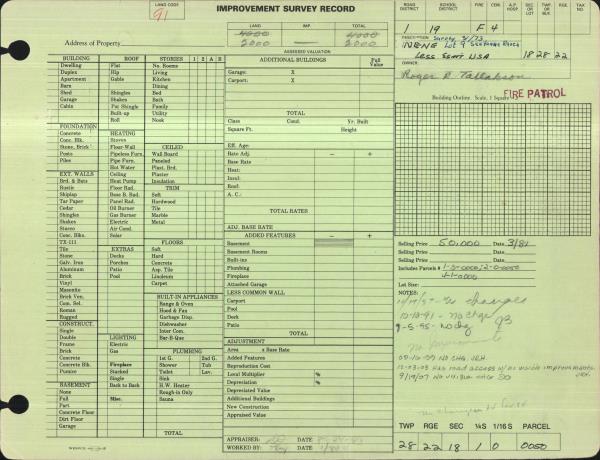 LAND CODE
91
IMPROVEMENT SURVEY RECORD
LAND IMP.
4000 4000
2000 2000
ASSESSED VALUATION
Address of Property
ROAD DISTRICT SCHOOL DISTRICT FIRE CEM. A.P HOSP SEC OR LOT TWP OR BLK RGE TAX NO
1 19 F 4
Survey 3/73
NENE Lot 9
Less Esmt USA 18 28 22
OWNER
Roger B. Tallakson
FIRE PATROL
Building Outline. Scale, 1 Square
BUILDING ROOF STORIES 1 2 A B
Dwelling Flat No. Rooms
Duplex Hip Living
Apartment Gable Kitchen
Barn Dining
Shed Shingles Bed
Garage Shakes Bath
Cabin Pat Shingle Family
Built-up Utility
Roll Nook
FOUNDATION
Concrete HEATING
Conc. Blk. Stoves CEILED
Stone, Brick Floor-Wall Wall Board
Posts Pipeless Furn. Paneled
Piles Pipe Furn. Plast. Brd.
Hot Water Plaster
EXT. WALLS Ceiling Insulation
Brd. & Bats Heat Pump
Rustic Floor Rad. TRIM
Shiplap Base B. Rad. Soft
Tar Paper Panel Rad. Hardwood
Cedar Oil Burner Tile
Shingles Gas Burner Marble
Shakes Electric Metal
Stucco Air Cond.
Conc. Blks. Solar
TX-111 FLOORS
Tile EXTRAS Soft
Stone Decks Hard
Galv. Iron Porches Concrete
Aluminum Patio Asp. Tile
Brick Pool Linoleum
Vinyl Carpet
Masonite
Brick Ven. BUILT-IN APPLIANCES
Com. Sel. Range & Oven
Roman Hood & Fan
Rugged Garbage Disp.
CONSTRUCT. Dishwasher
Single Inter Com.
Double LIGHTING Bar-B-Que
Frame Electric
Brick Gas PLUMBING
Concrete 1st G. 2nd G.
Concrete Blk. Fireplace Shower Tub
Pumice Stacked Toilet Lav.
Single Sink
BASEMENT Back to Back H.W. Heater
None Rough-in Only
Full Misc. Sauna
Part
Concrete Floor
Dirt Floor
Garage TOTAL
ADDITIONAL BUILDINGS Full Value
Garage: X
Carport: X
TOTAL
Class Cond. Yr. Built
Square Ft. Height
Eff. Age:
Rate Adj. - +
Base Rate
Heat:
Insul:
Roof:
A. C.:
TOTAL RATES
ADJ. BASE RATE
ADDED FEATURES - +
Basement
Basement Rooms
Built-ins
Plumbing
Fireplace
Attached Garage
LESS COMMON WALL
Carport
Pool
Deck
Patio
TOTAL
ADJUSTMENT
Area x Base Rate
Added Features
Reproduction Cost
Local Multiplier %
Depreciation %
Depreciated Value
Additional Buildings
New Construction
Appraised Value
APPRAISER:
WORKED BY:
Selling Price 50,000 Date 3/81
Selling Price Date
Includes Parcels #
Lot Size:
NOTES:
10-18-91 - No Chge
9-5-95 - No chg
No improvements
09-10-99 NO CHG. JEH.
12-03-03 Has road access w/ no visible improvements.
TWP RGE SEC ¼S 1/16 S PARCEL
28 22 18 1 0 0050